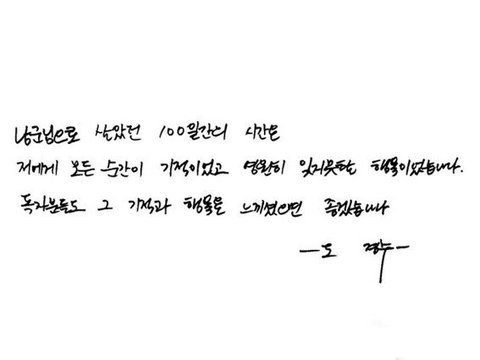 낭군님으로 살았던 100일간의 시간은
저에게 모든 순간이 기적이었고 영원히 잊지못할 행복이었습니다.
독자분들도 그 기적과 행복을 느끼셨으면 좋겠습니다
—도 경수—